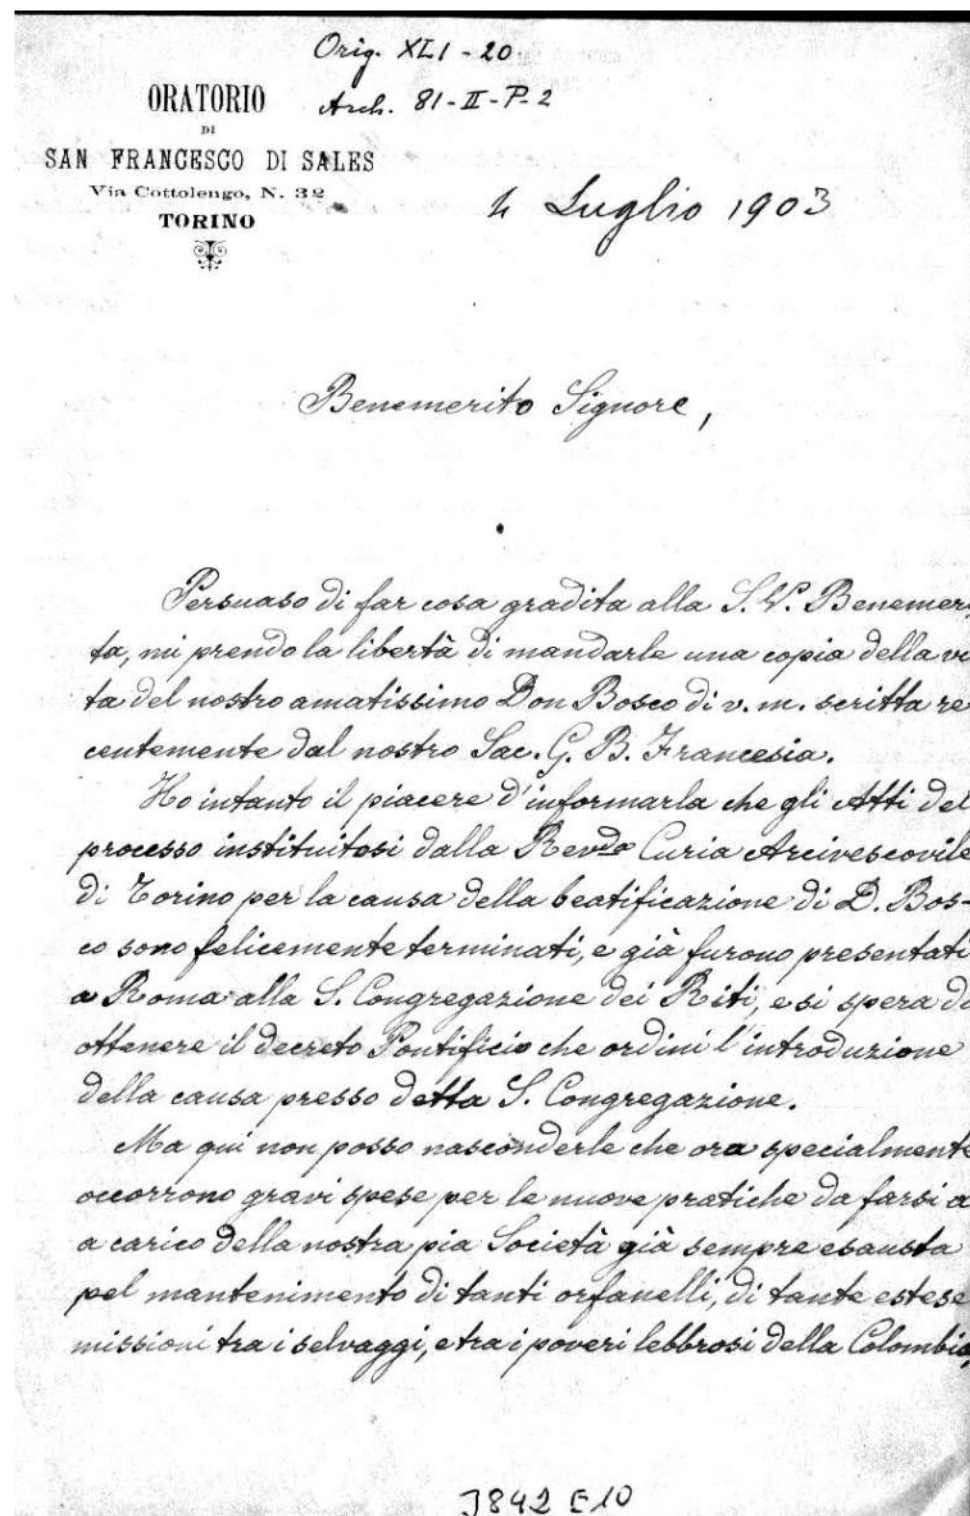 Orig. XLI - 20
ORATORIO
Arch. 81-II-P-2
DI
SAN FRANCESCO DI SALES
Via Cottolengo, N. 32
TORINO
4 Luglio 1903
Benemerito Signore,
Persuaso di far cosa gradita alla S. V. Benemeri
ta, mi prendo la libertà di mandarle una copia della vi
ta del nostro amatissimo Don Bosco di v. m. scritta re
centemente dal nostro Sac. G. B. Francesia.
Ho intanto il piacere d'informarla che gli Atti del
processo instituitosi dalla Revda Curia Arcivescovile
di Torino per la causa della beatificazione di D. Bos-
co sono felicemente terminati, e già furono presentati
a Roma alla S. Congregazione dei Riti, e si spera di
ottenere il decreto Pontificio che ordini l'introduzione
della causa presso detta S. Congregazione.
Ma qui non posso nasconderle che ora specialmente
occorrono gravi spese per le nuove pratiche da farsi a
a carico della nostra pia Società già sempre esausta
pel mantenimento di tanti orfanelli, di tante estese
missioni tra i selvaggi, e tra i poveri lebbrosi della Colombia,
3842 E10